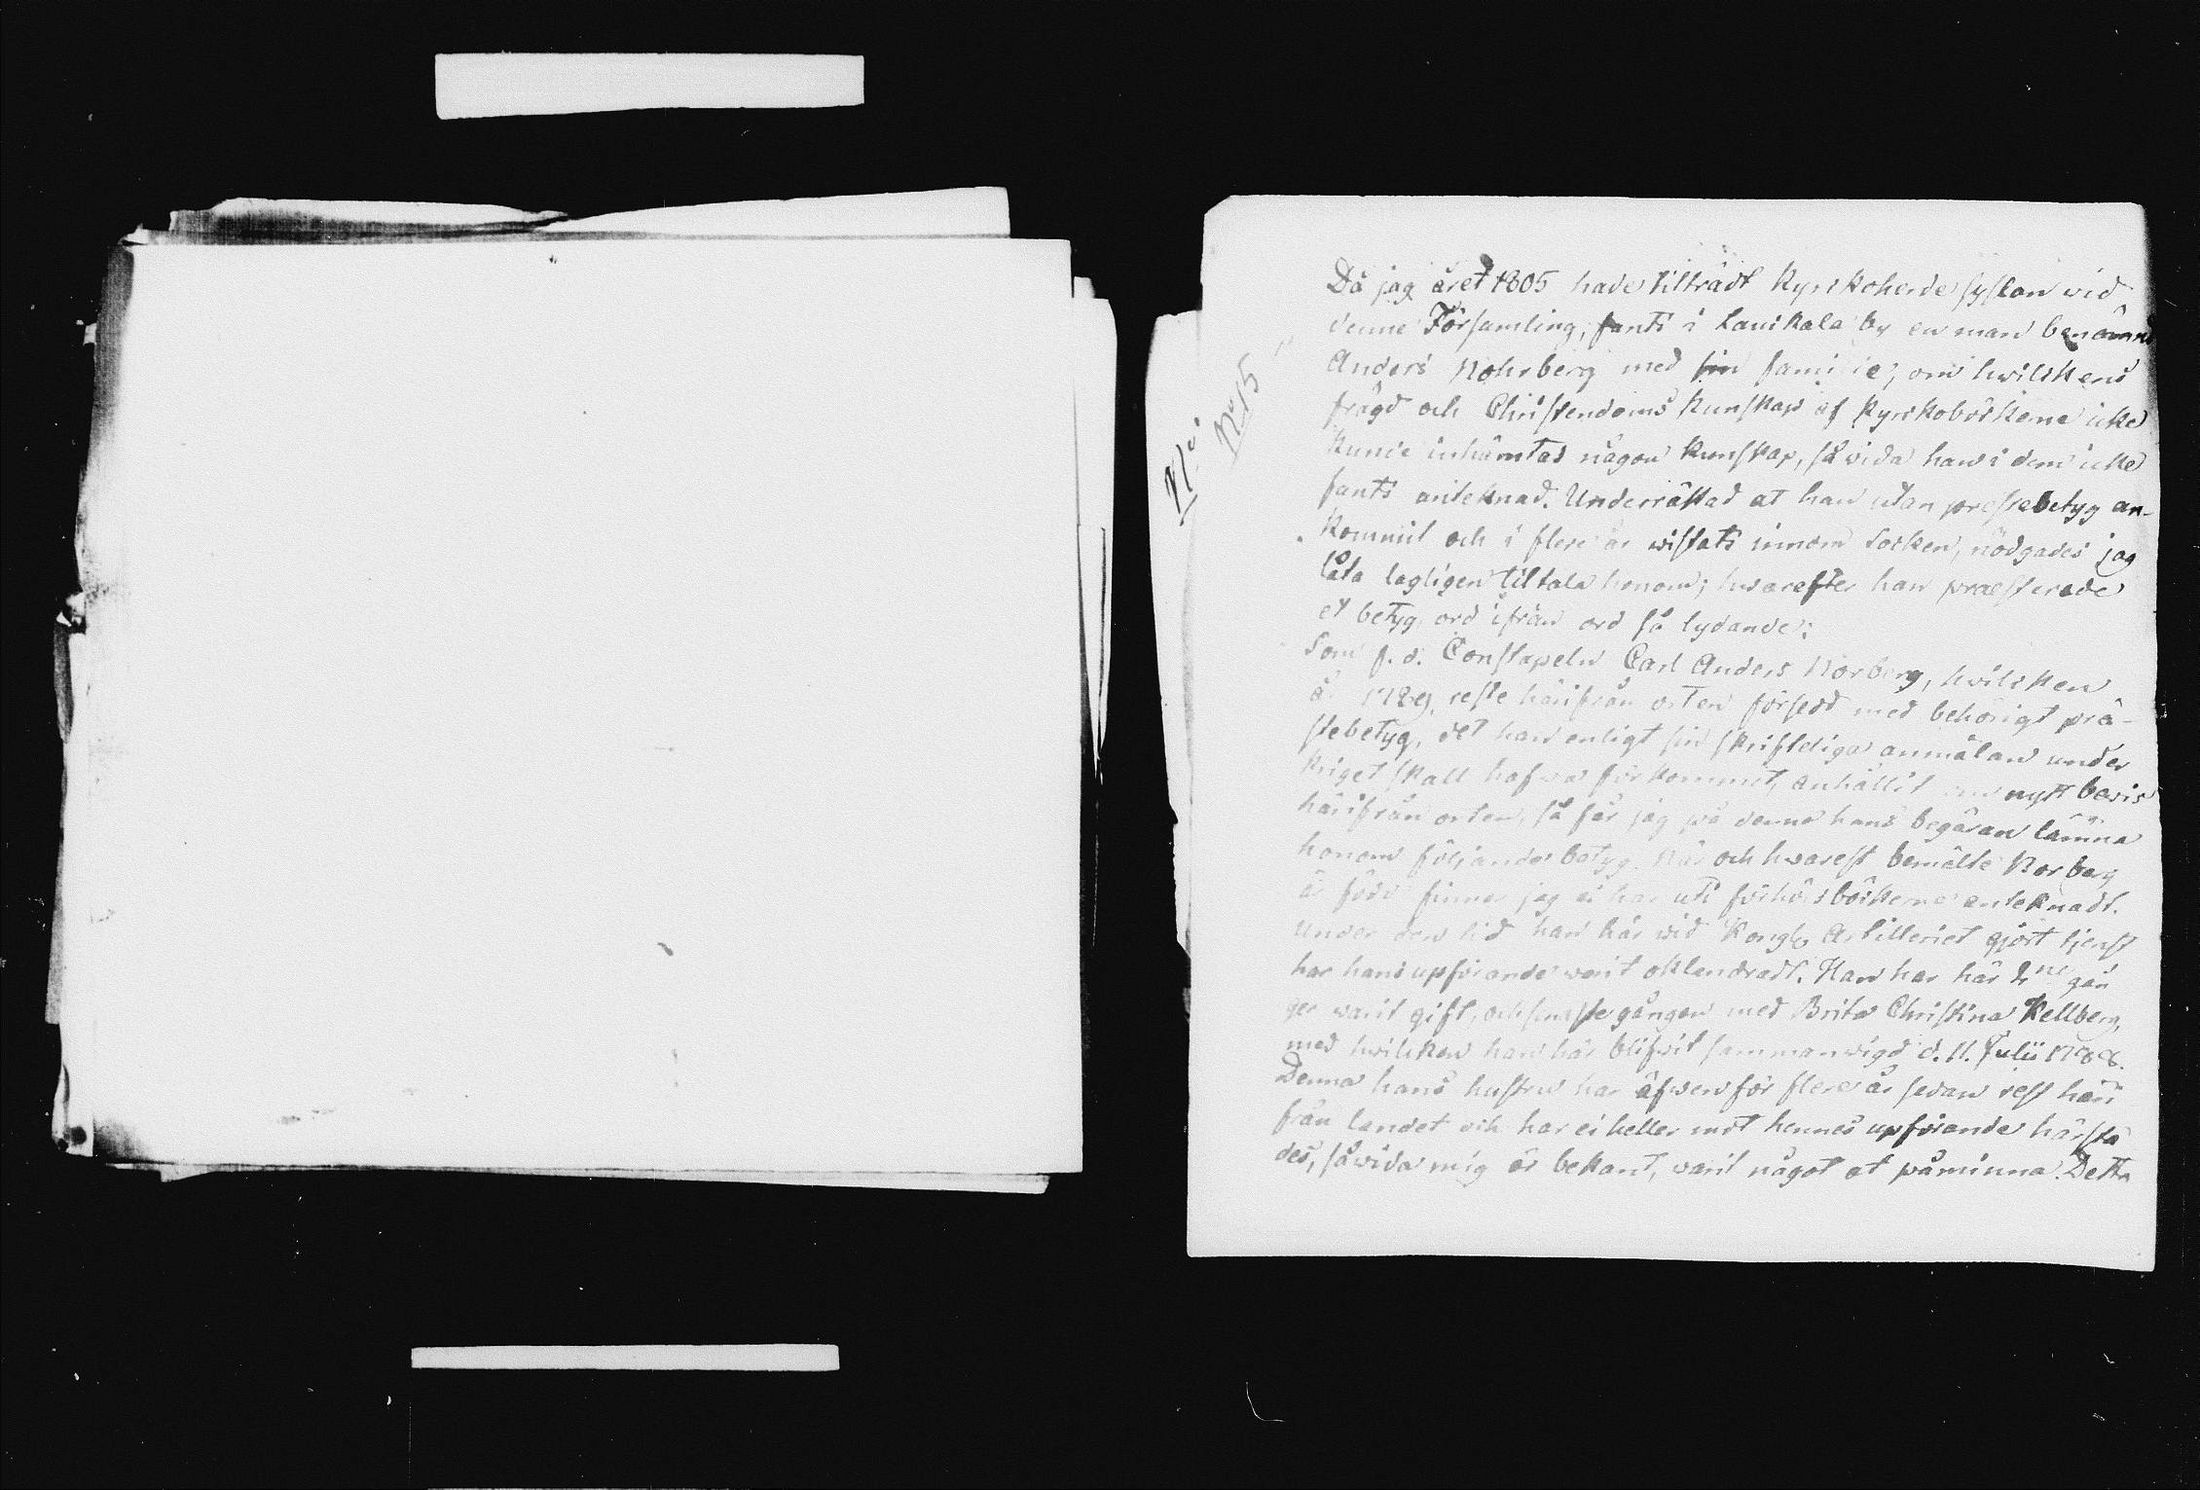 N:o 15
Då jag året 1805 hade tilträdt Kyrkoherde syslan wid
denne Församling, fants i Lauikala by en man benämnd
Anders Nohrberg med sin familie; om hwilkens
frägd och Christendoms kunskap af Kyrkoböckerne icke
kunde inhämtas någon kunskap, så wida han i dem icke
fants anteknad. Underrättad at han utan prestebetyg an-
kommit och i flere år wistats innom Socken, nödgades jag
låta lagligen tiltala honom; hwarefter han præsterade
et betyg, ord ifrån ord så lydande:
Som f.d. Constapeln Carl Anders Norberg, hwilken
år 1789, reste härifrån orten försedd med behörigt prä-
stebetyg, det han enligt sin skriftliga anmälan under
kriget skall hafwa förkommit, anhållit om nytt bewis
härifrån orten, så får jag på denna hans begäran lämna
honom följande betyg. När och hwarest bemälte Norberg
är född finner jag ei här uti förhörsböckerne anteknadt.
Under den tid han här wid Kongl. Artilleriet gjört tjenst
har hans upförande warit oklandradt. Han har här 2:ne gån
ger warit gift, och senaste gången med Brita Christina Kellberg,
med hwilken han här blifwit sammanwigd d. 11. Julii 1788.
Denna hans hustru har äfwen för flere år sedan rest häri
från landet och har ei heller mot hennes upförande härstä
des, så wida mig är bekant, warit något at påminna. Detta